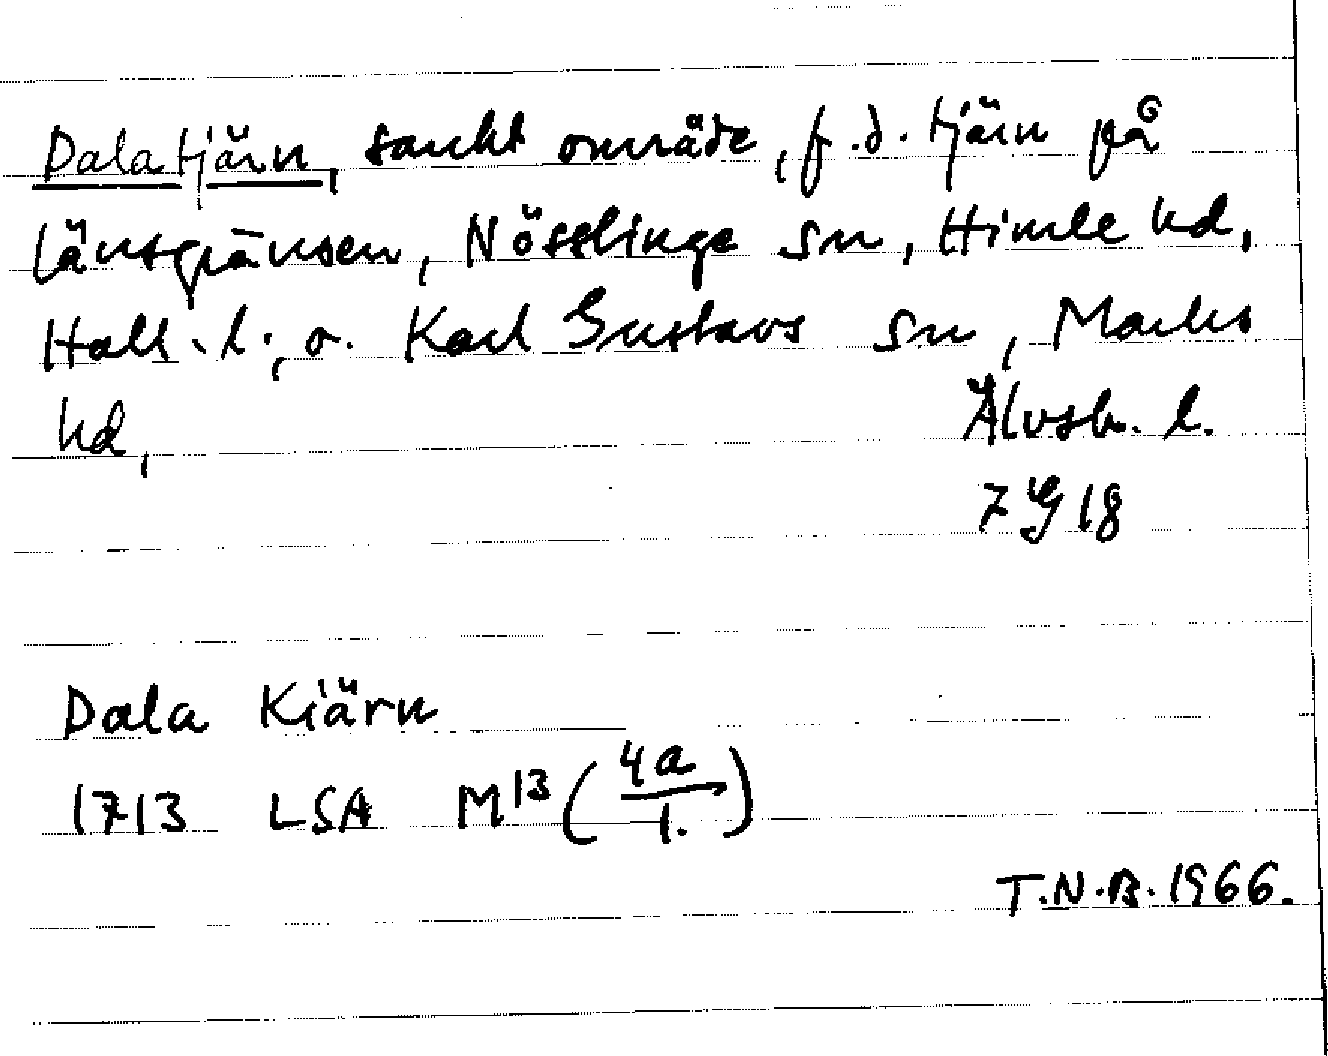 Dalatjärn, sankt område, f.d. tjärn på
länsgränsen, Nösslinge sn, Himle hd,
Hall. l., o. Karl Gustavs sn, Marks
hd, Älvsb. l.
7 G 18
Dala Kiärn
1713 LSA M13 (4a/1.)
T.N.B. 1966.